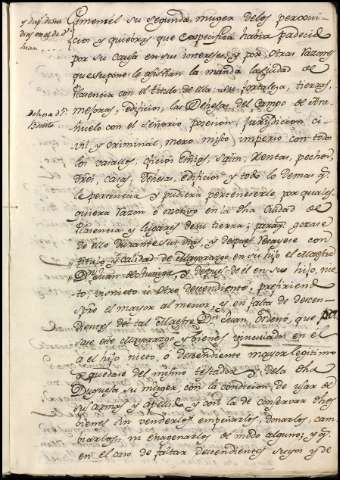 Pimentel su segunda muger delos perjui
cios y quiebras que especifica havia padecido
por su causa en sus intereses, y por otras razones
que supone le asistian la manda la ciudad de
Plasencia con el titulo de ella, su fortaleza, tierras,
mesoras, edificios, las Dehesas del Campo de
con el señorio, posesion, jurisdiccion ci
vil y criminal, mero misto imperio con todos
los vasallos, oficios, rentas, pechos,
casas, Dehesas, edificios y todo lo demas qe
le pertenecia y pudiera pertenecerle por quales
quiera razon o motivo en dha Ciudad de
Plasencia y lugares de su tierra; para qe gozase
de ello durante su vida, y despues recayese con
titulo y calidad de Mayorazgo en su hijo el Maestre
Dn Juan de Zuñiga, y despues de el en sus hijo, nie
to, visnieto u otro descendiente, prefiriendo
spre el mayor al menor, y en falta de descen
dientes del tal Maestre Dn Juan, ordenó, que
este Mayorazgo y bienes vinculados en el
a el hijo, nieto, o descendiente mayor legitimo
qe quedare del mismo testador y dela dha
Duquesa su muger con la condicion de usar de
sus armas y apellido y con la de conservar dhos
bienes sin venderlos empeñarlos, donarlos, cam
biarlos, ni enagenarlos de modo alguno; y qe
en el caso de faltar descendientes suyos y de